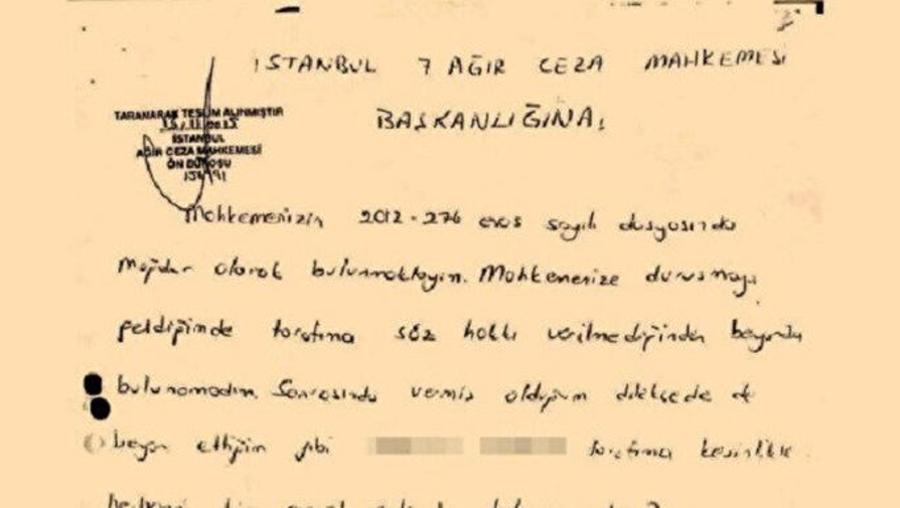 İSTANBUL 7 AĞIR CEZA MAHKEMESİ
BAŞKANLIĞINA,
TARANARAK TESLİM ALINMIŞTIR
İSTANBUL
AĞIR CEZA MAHKEMESİ
ÖN BÜROSU
Mahkemenizin 2012-276 esas sayılı dosyasında
Mağdur olarak bulunmaktayım. Mahkemenize duruşmaya
geldiğimde tarafıma söz hakkı verilmediğinden beyanda
bulunamadım. Sonrasında vermiş olduğum dilekçede de
beyan ettiğim gibi tarafıma kesinlikle